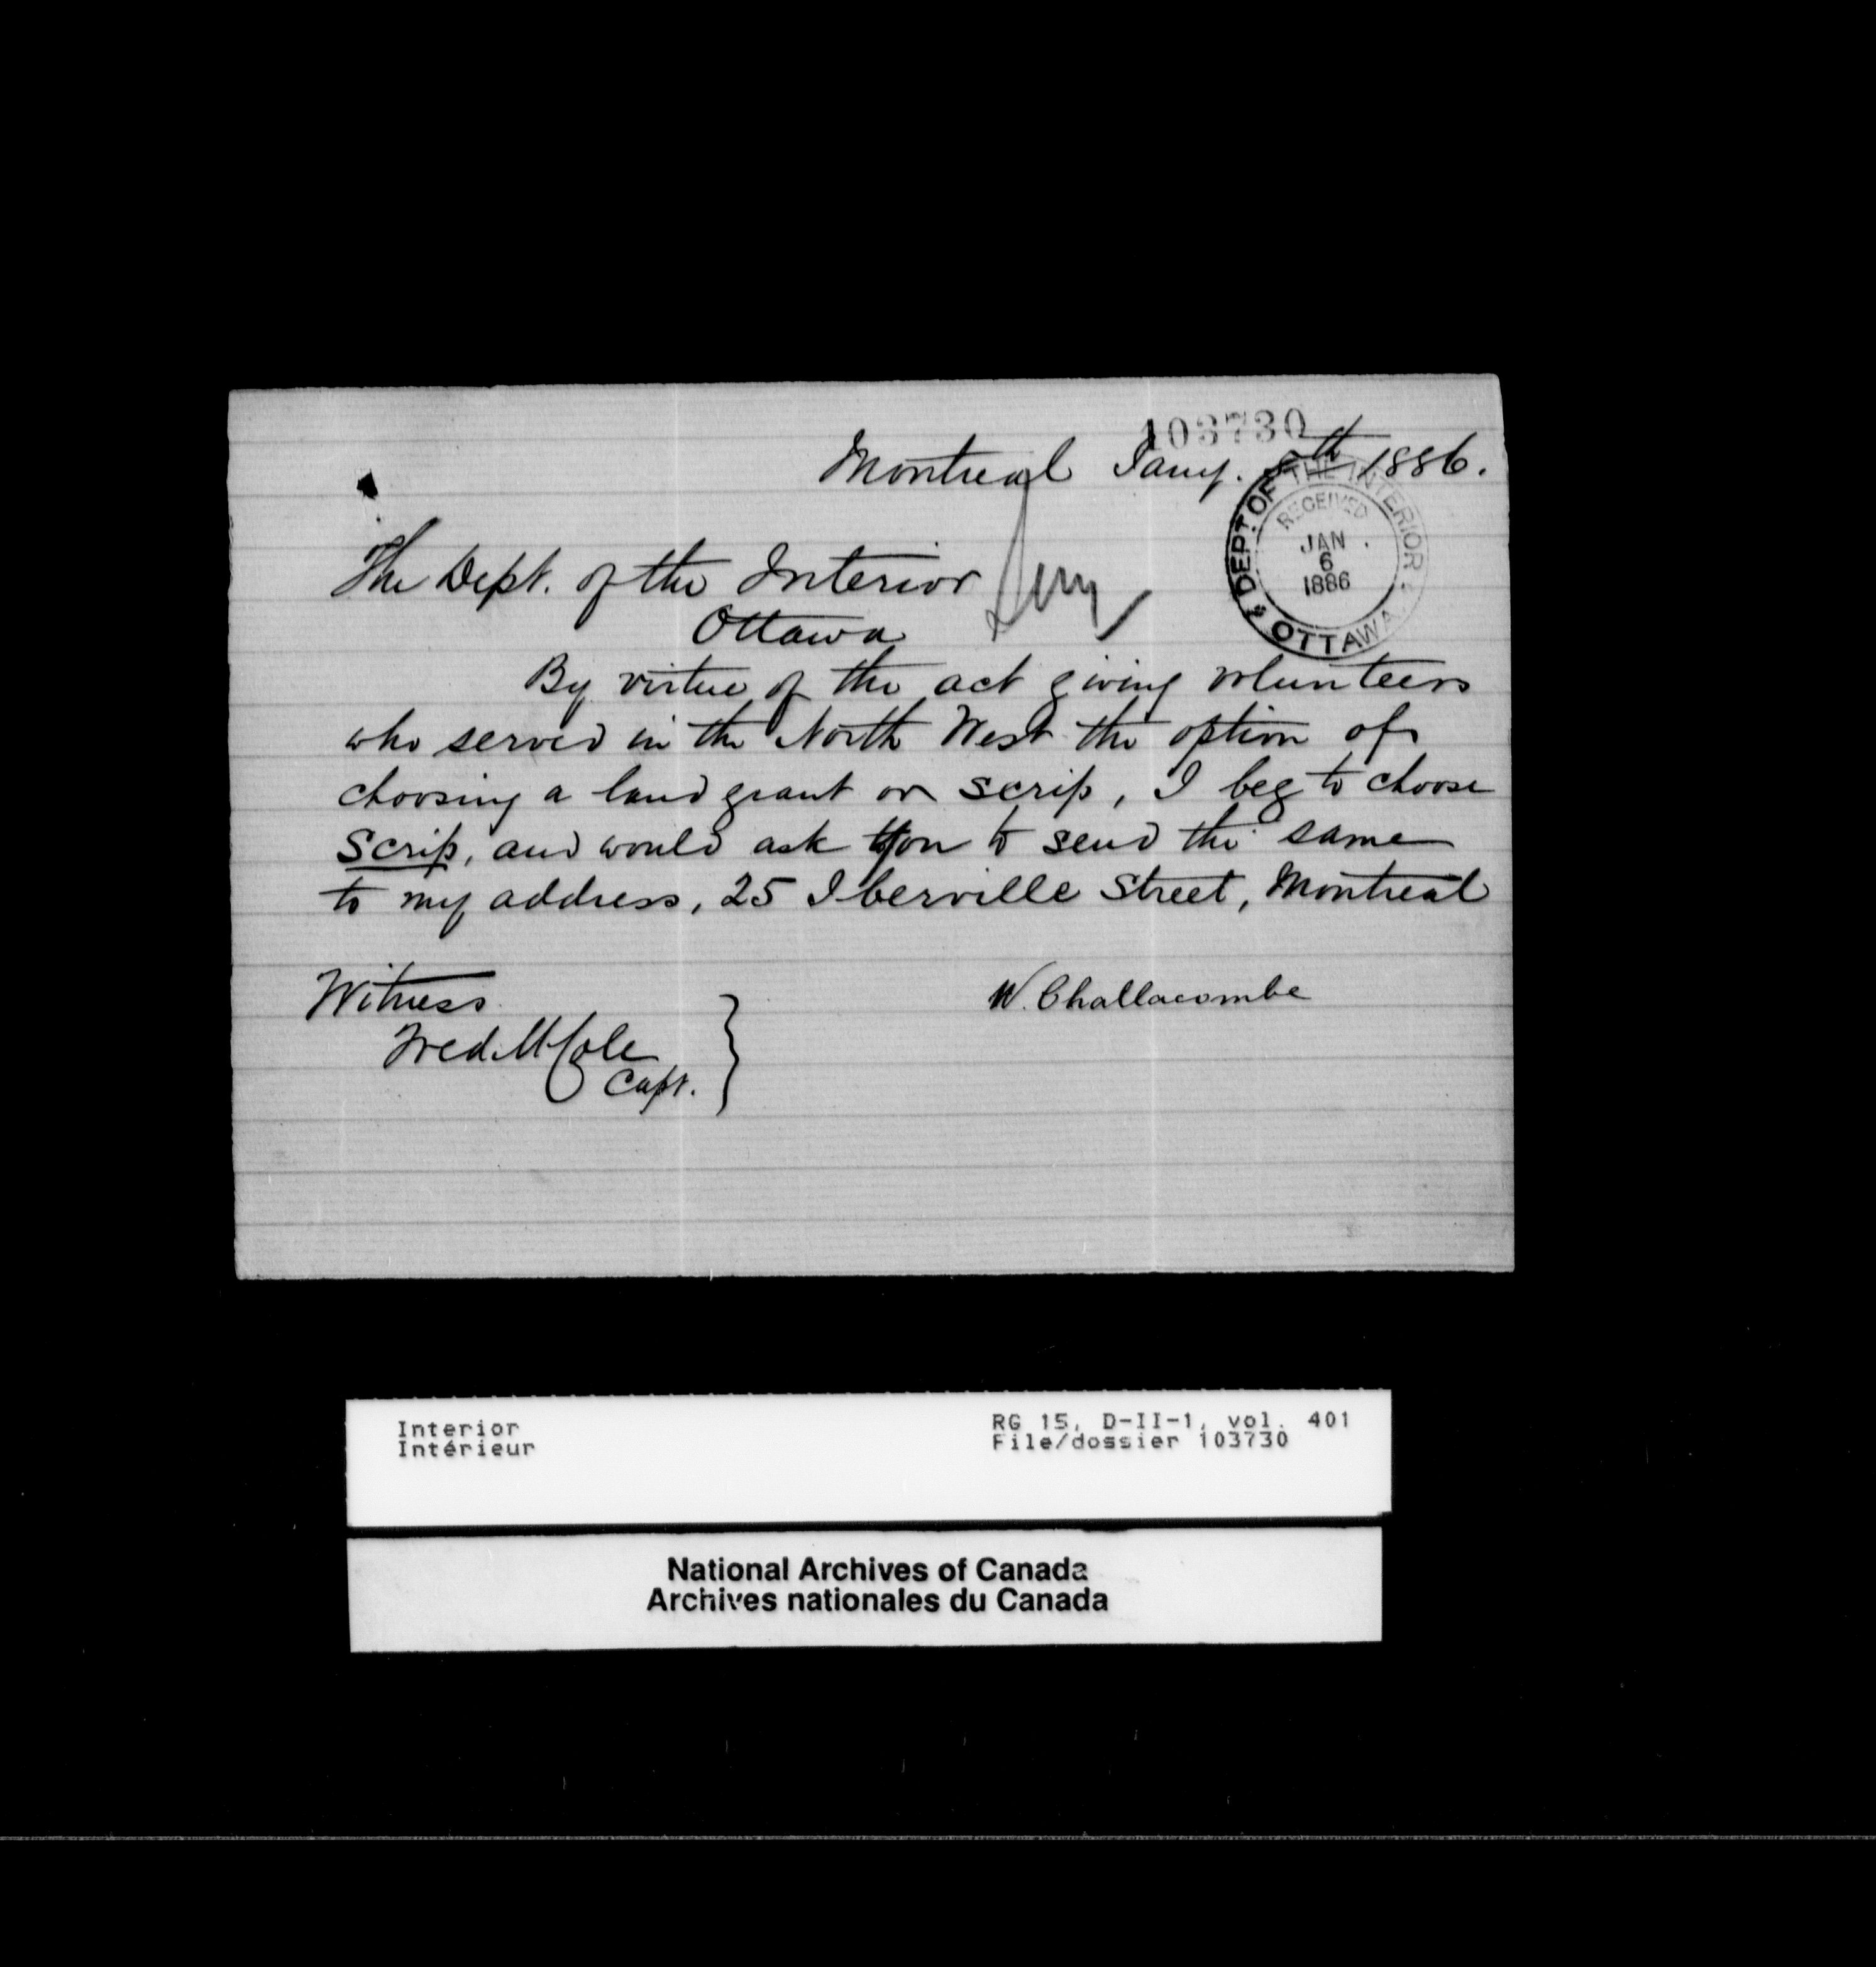 103730
Montreal Jany. 5th 1886.
DEPT. OF THE INTERIOR
RECEIVED
JAN
6
1886
OTTAWA
The Dept. of the Interior
Ottawa
By virtue of the act giving volunteers
who served in the North West the option of
choosing a land grant or scrip, I beg to choose
scrip, and would ask you to send the same
to my address, 25 Iberville Street, Montreal
Witness
W. Challacombe
Fred. M Cole
Capt.
Interior
Intérieur
RG 15, D-II-1, vol. 401
File/dossier 103730
National Archives of Canada
Archives nationales du Canada